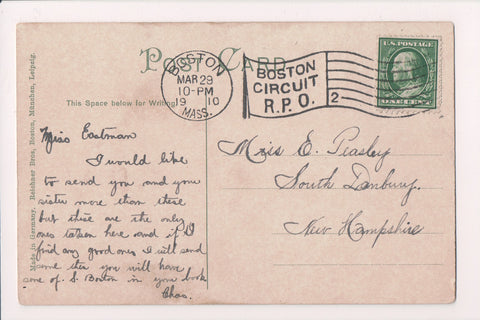 POST CARD
BOSTON
MAR 29
10-PM
19 10
MASS.
BOSTON
CIRCUIT
R.P.O.
2
U.S. POSTAGE
ONE CENT
This Space below for Writing
Made in Germany. Reichner Bros, Boston, München, Leipzig.
Miss Eastman
I would like
to send you and your
sister more than these
but these are the only
ones taken here and if I
find any good ones I will send
some then you will have
some of S. Boston in your book
Chas.
Miss E. Peasley
South Danbury,
New Hampshire